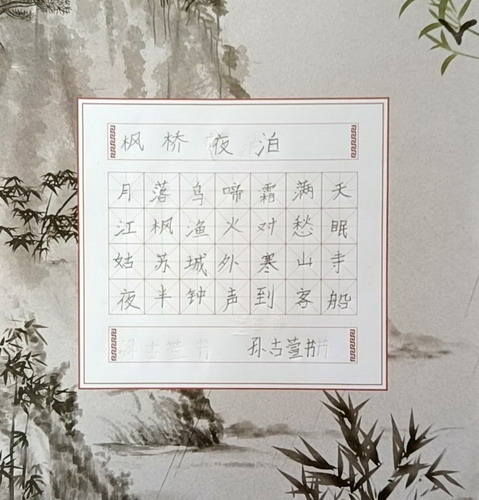 枫桥夜泊
月落乌啼霜满天
江枫渔火对愁眠
姑苏城外寒山寺
夜半钟声到客船
孙古萱书